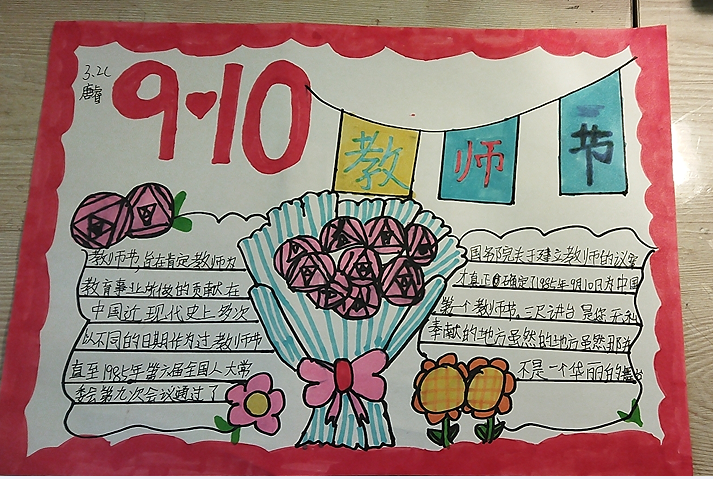 3.2
唐睿
9·10
教师节
教师节,旨在肯定教师为
教育事业所做的贡献在
中国近现代史上多次
以不同的日期作为过教师节
直至1985年第六届全国人大常
委会第九次会议通过了
国务院关于建立教师的议案
才真正确定了1985年9月10日为中国
第一个教师节三尺讲台是您无私
奉献的地方虽然的地方虽然那
不是一个华丽的的舞台